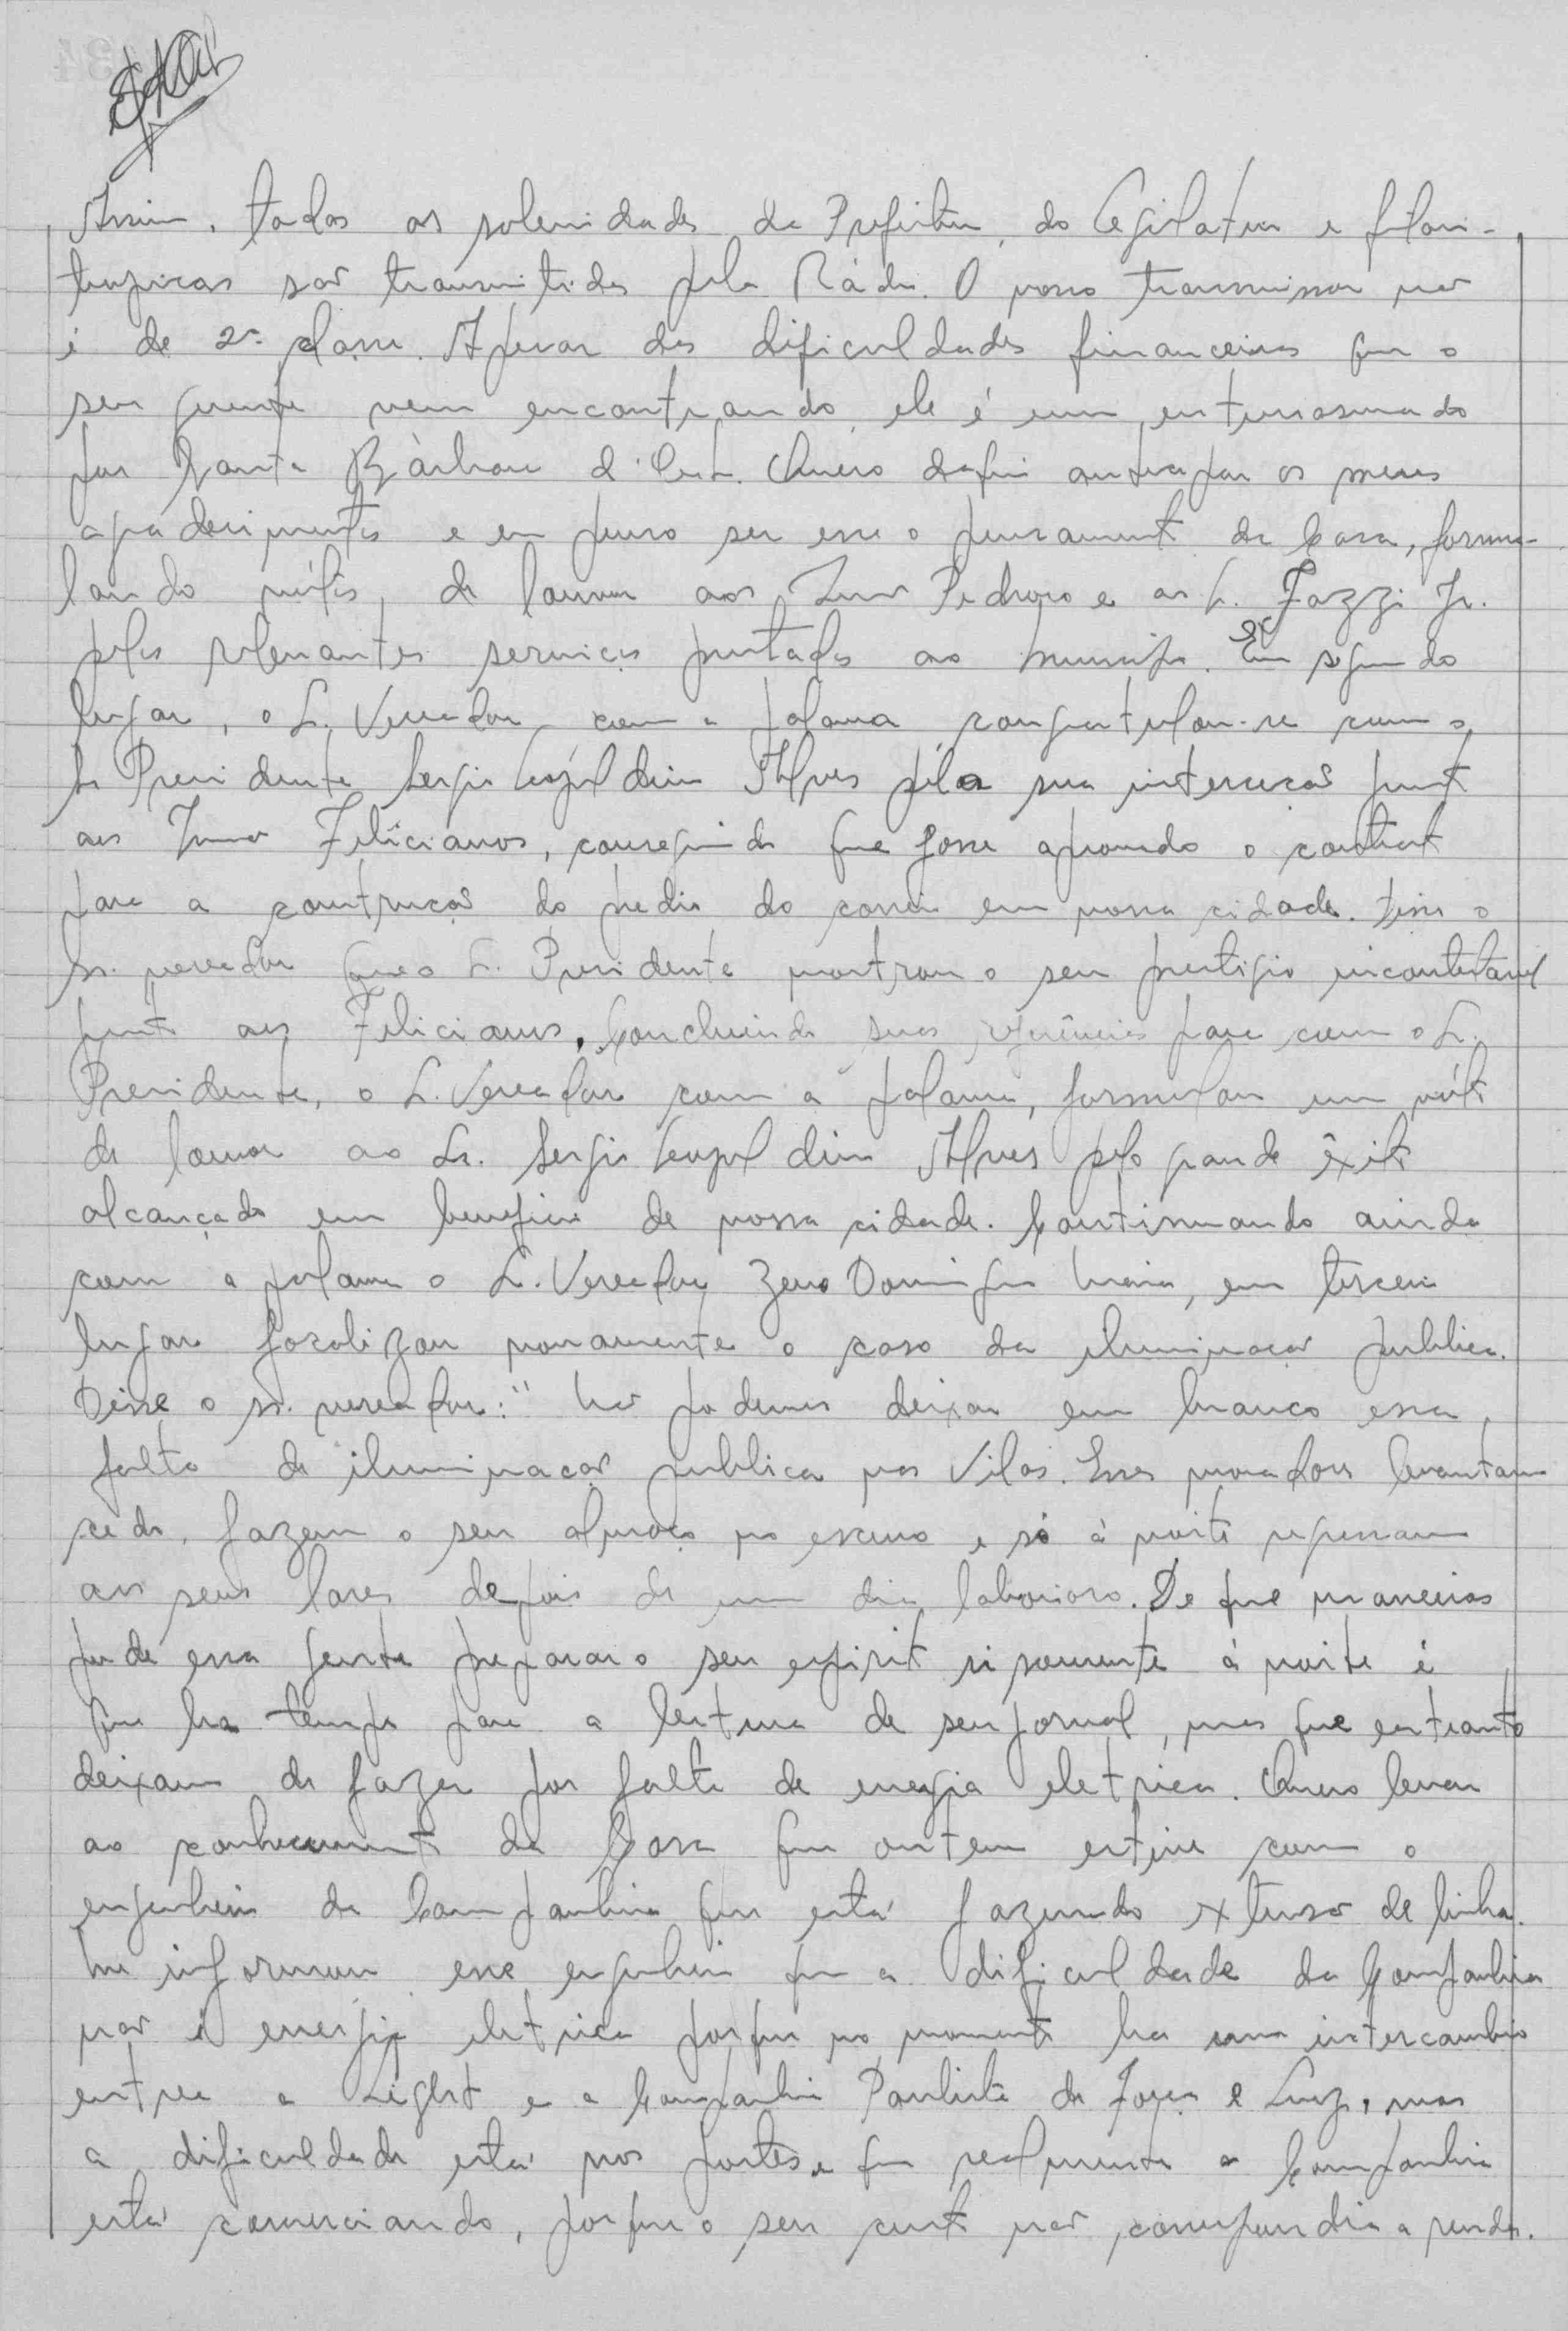 Assim, todas as solenidades da Prefeitura, do Legislativo e filan-
tropicas são transmitidas pela Rádio. O nosso transmissor não
é de 2ª classe. Apesar das dificuldades financeiras que o
seu gerente vem encontrando, ele é um entusiasmado
por Santa Bárbara d'Oeste. Quero daqui antecipar os meus
agradecimentos e eu penso ser esse o pensamento da Casa, formu-
lando votos de louvor aos Irmãos Pedroso e ao Sr. Fazzi Jr.
pelos relevantes serviços prestados ao municipio. Em segundo
lugar, o Sr. Vereador com a palavra congratulou-se com o
Sr Presidente Sergio Leopoldino Alves pela sua interseção junto
aos Irmãos Felicianos, conseguindo que fosse aprovado o contrato
para a construção do predio do correio em nossa cidade. Disse o
sr. vereador que o Sr. Presidente mostrou o seu prestigio incontestavel
junto aos Felicianos. Concluindo suas referências para com o Sr.
Presidente, o Sr. Vereador com a palavra, formulou um vóto
de louvor ao Sr. Sergio Leopoldino Alves pelo grande êxito
alcançado em beneficio de nossa cidade. Continuando ainda
com a palavra o Sr. Vereador Zeno Domingos Maia, em terceiro
lugar focalizou novamente o caso da iluminação publica.
Disse o sr. vereador: "Não podemos deixar em branco essa
falta de iluminação publica nas Vilas. Esses moradores levantam
cedo, fazem o seu almoço no escuro e só à noite regressam
aos seus lares depois de um dia laborioso. De que maneiras
pode essa gente preparar o seu espirito si somente à noite é
que ha tempo para a leitura de seu jornal, mas que entranto
deixam de fazer por falta de energia eletrica. Quero levar
ao conhecimento da Casa que ontem estive com o
engenheiro da Companhia que está fazendo extensão de linha.
Me informou esse engenheiro que a dificuldade da Companhia
não é energia eletrica porque no momento ha um intercambio
entre a Light e a Companhia Paulista de Força e Luz, mas
a dificuldade está nos postes e que realmente a Companhia
está comerciando, porque o seu custo não correspondia a renda.